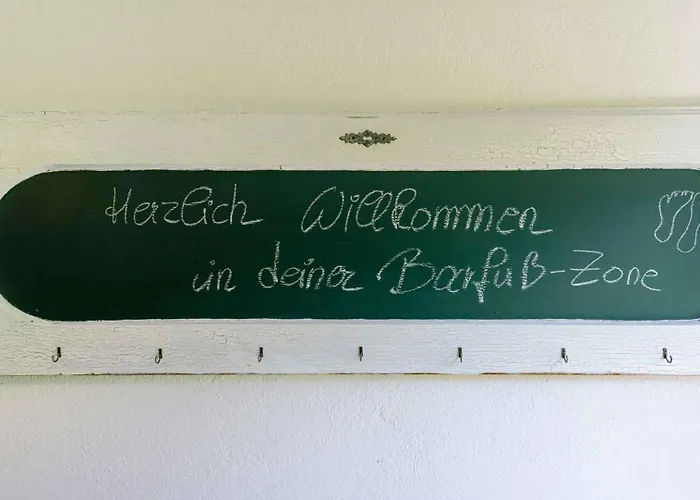 Herzlich Willkommen
in deiner Barfuß-Zone